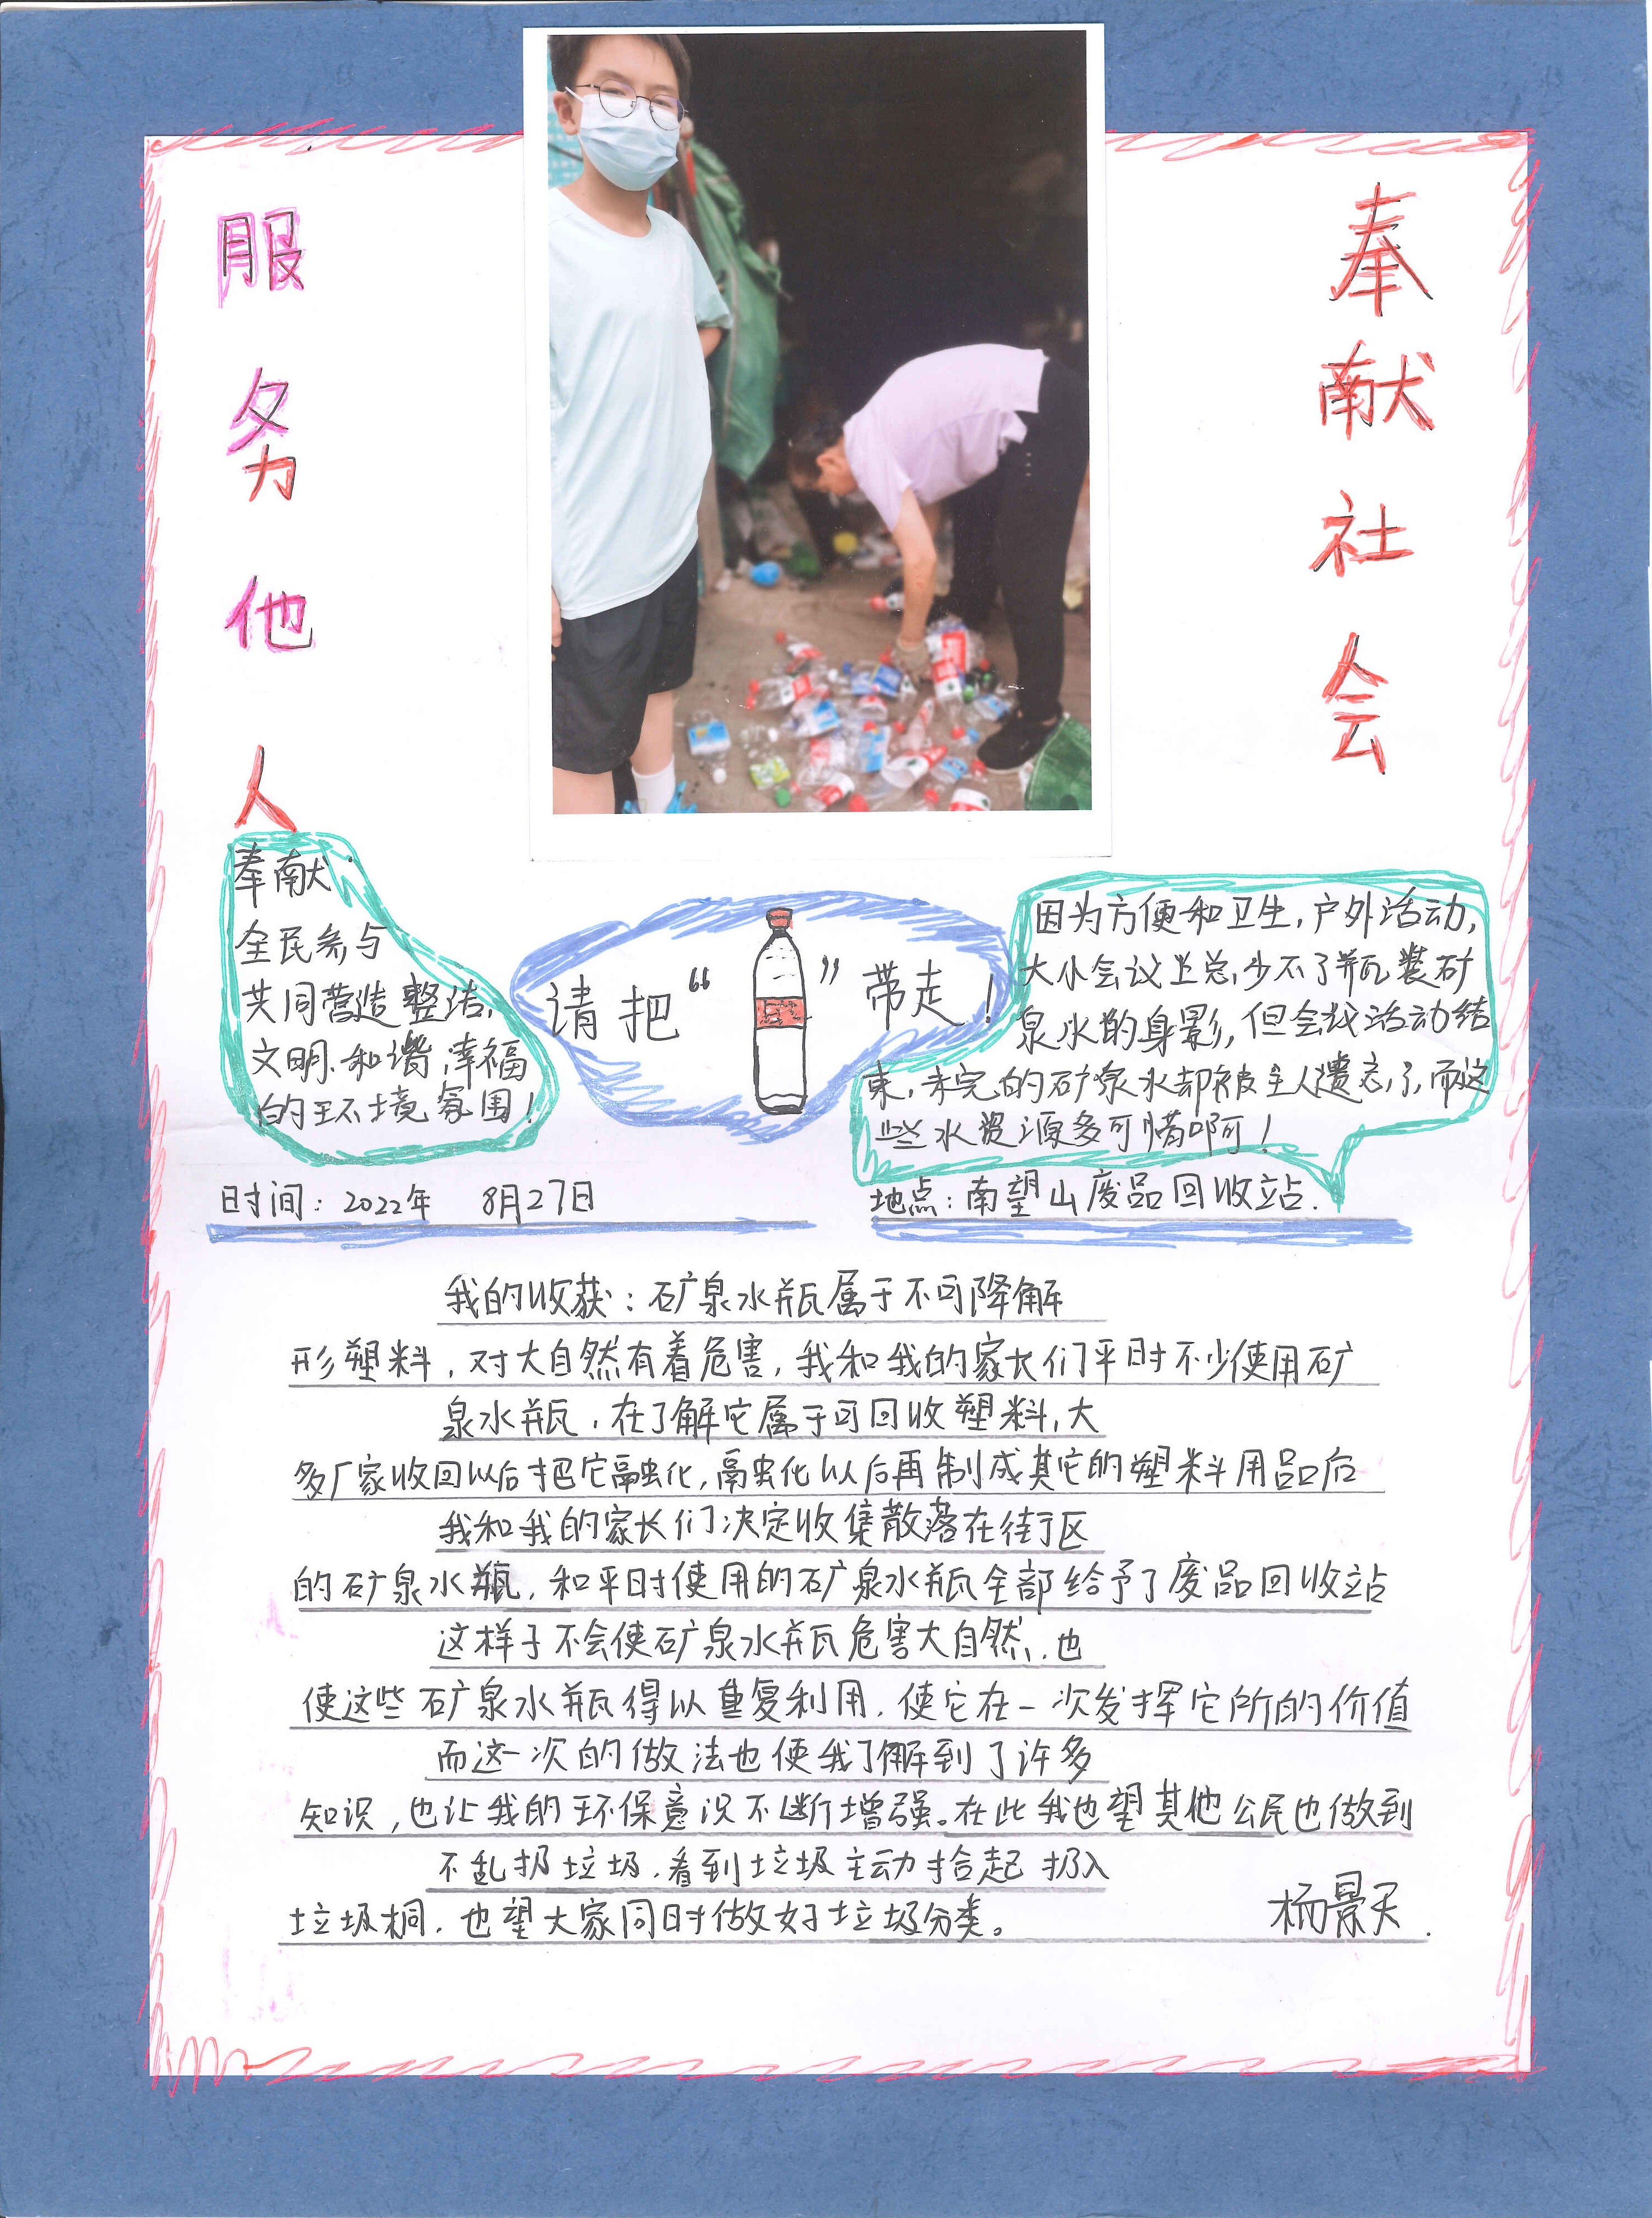 服务他人
奉献社会
奉献：
全民参与
共同营造整洁、
文明、和谐、幸福
的环境氛围！
请把“ ”带走！
因为方便和卫生，户外活动，
大小会议上总，少不了瓶装矿
泉水的身影，但会找活动结
束，未完的矿泉水却被主人遗忘了，而这
些水资源多可惜啊！
时间：2022年 8月27日
地点：南望山废品回收站．
我的收获：矿泉水瓶属于不可降解
形塑料，对大自然有着危害，我和我的家长们平时不少使用矿
泉水瓶，在了解它属于可回收塑料，大
多厂家收回以后把它融化，融化以后再制成其它的塑料用品后
我和我的家长们决定收集散落在街区
的矿泉水瓶，和平时使用的矿泉水瓶全部给予了废品回收站
这样子不会使矿泉水瓶危害大自然、也
使这些矿泉水瓶得以重复利用，使它在一次发挥它所的价值
而这一次的做法也使我了解到了许多
知识，也让我的环保意识不断增强。在此我也望其他公民也做到
不乱扔垃圾，看到垃圾主动拾起扔入
垃圾桐，也望大家同时做好垃圾分类。
杨景天．